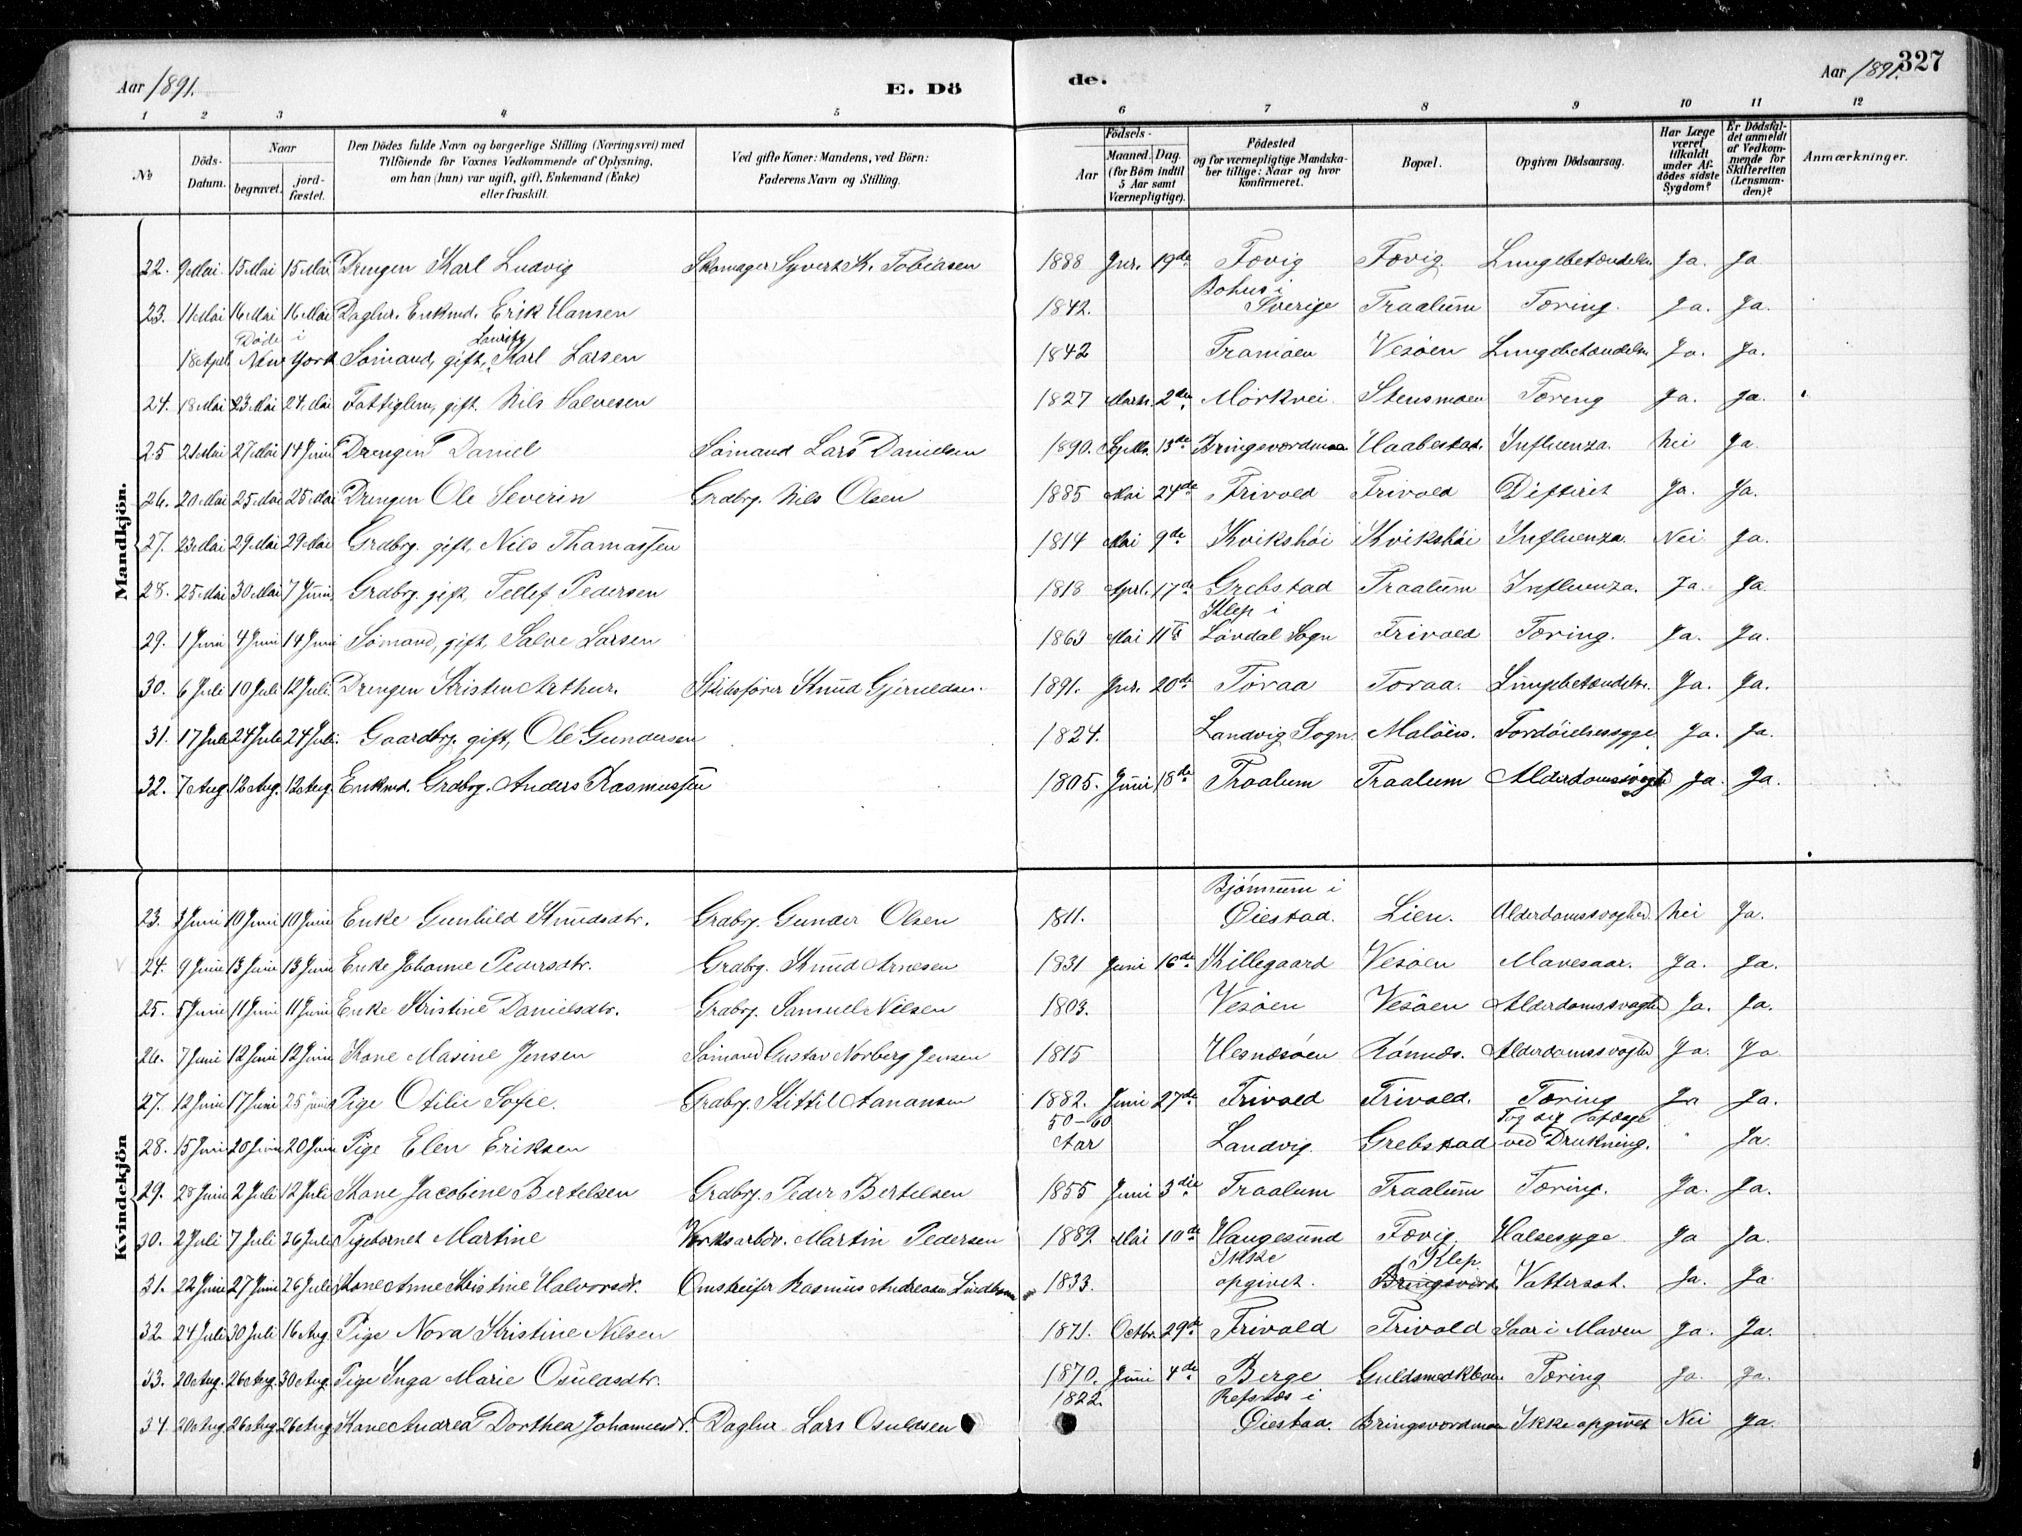 Aar 1891. E. Dö de. Aar 1891. 327
1 2 3 4 5 6 7 8 9 10 11 12
No Döds-Datum. Naar begravet. jord-fæstet. Den Dödes fulde Navn og borgerlige Stilling (Næringsvei) med Tilföiende for Voxnes Vedkommende af Oplysning, om han (hun) var ugift, gift, Enkemand (Enke) eller fraskilt. Ved gifte Koner: Mandens, ved Börn: Faderens Navn og Stilling. Födsels- Aar Maaned. Dag. (for Börn indtil 5 Aar samt Værnepligtige). Födested og for værnepligtige Mandskaber tillige: Naar og hvor konfirmeret. Bopæl. Opgiven Dödsaarsag. Har Læge været tilkaldt under Afdödes sidste Sygdom? Er Dödsfaldet anmeldt af Vedkommende for Skifteretten (Lensmanden)? Anmærkninger.
Mandkjön.
22. 9 Mai 15 Mai 15 Mai Drengen Karl Ludvig Skomager Syvert K. Tobiasen 1888 Jnr. 19de Fævig Fævig. Lungebetændelse Ja. Ja
23. 11 Mai 16 Mai 16 Mai Dagltr. Enkmd. Erik Hansen 1842. Bohus i Sverige Traalum Tæring. Ja. Ja.
18 April Døde i New York Sømand, gift, Karl Lauritz Larsen 1842 Tromøen Vesøen Lungebetændelse Ja. Ja.
24. 18 Mai 23 Mai 24 Mai Fattiglem, gift. Nils Salvesen 1827 Marts. 2den Mørkvei Stensmoen Tæring Ja. Ja.
25 21 Mai 27 Mai 14 Juni Drengen Daniel Sømand Lars Danielsen 1890. Septbr. 13de Bringsværdmoa Haabestad. Influenza. Nei Ja
26. 20 Mai 25 Mai 25 Mai Drengen Ole Severin Grdbrg. Nils Olsen 1885 Mai 24de Frivold Frivold Difterit Ja. Ja.
27. 23 Mai 29 Mai 29 Mai Grdbrg. gift, Nils Thomassen 1814 Mai 9de Kvikshøi Kvikshøi Influenza. Nei Ja.
28. 25 Mai 30 Mai 7 Juni Grdbrg. gift, Tellef Pedersen 1818 Aprl. 17de Grebstad Traalum Influenza. Ja. Ja
29. 1 Juni 4 Juni 14 Juni Sømand, gift, Salve Larsen 1863 Mai 11te Klep i Løvdal Sogn Frivold Tæring. Ja. Ja.
30. 6 Juli 10 Juli 12 Juli Drengen Kristen Arthur. Skibsfører Knud Gjeruldsen. 1891. Jnr. 20de Toraa Toraa. Lungebetændelse. Ja. Ja.
31. 17 Juli 24 Juli 24 Juli. Gaardbrg. gift, Ole Gundersen 1824. Landvig Sogn Maløen. Fordøielsessyge Ja. Ja.
32. 7 Aug 12 Aug. 12 Aug. Enkmd. Grdbrg. Anders Rasmussen 1805. Juni 18de Traalum Traalum Alderdomssvaghed Ja. Ja.
Kvindekjön
23. Juni 10 Juni 10 Juni Enke Gunhild Knudsdtr. Grdbrg. Gunder Olsen 1811. Bjønnum i Øiestad. Lien. Alderdomssvaghed. Nei Ja.
24. 9 Juni 13 Juni 13 Juni Enke Johanne Pedersdtr. Grdbrg. Knud Arnesen 1831 Juni 16de Killegaard Vesøen Mavesaar. Ja. Ja.
25. 5 Juni 11 Juni 11 Juni Enke Kristine Danielsdtr. Grdbrg. Samuel Nilsen 1803. Vesøen Vesøen Alderdomssvaghed Ja. Ja.
26. 7 Juni 12 Juni 12 Juni Kone Maxine Jensen Sømand Gustav Norberg Jensen 1815 Hesnæsøen Rønnæs. Alderdomssvaghed Ja. Ja
27. 12 Juni 17 Juni 25 Juni Pige Otilie Sofie. Grdbrg. Kittil Aanansen 1882. Juni 27de Frivold Frivold. Tæring Ja Ja.
28. 15 Juni 20 Juni 20 Juni Pige Elen Eriksen 50-60 Aar Landvig. Grebstad Tog sig afdage ved Drukning. " Ja
29. 28 Juni 2 Juli 12 Juli Kone Jacobine Bertelsen Grdbrg. Peder Bertelsen 1855 Juni 3die Traalum Traalum Tæring. Ja. Ja.
30. 2 Juli 7 Juli 26 Juli Pigebarnet Martine Værksarbdr. Martin Pedersen 1889. Mai 10de Haugesund Fævig. Halsesyge Ja Ja.
31. 22 Juni 27 Juni 26 Juli Kone Anne Kristine Halvorsdtr. Omstreifer Rasmus Andreasen 1833. Ikke opgivet. Bringsværd Klep. Vattersot. Ja. Ja
32. 24 Juli 30 Juli 16 Aug. Pige Nora Kristine Nilsen 1871. Octbr. 29de Frivold Frivold Saar i Maven Ja. Ja.
33. 20 Aug. 26 Aug. 30 Aug. Pige Inga Marie Osuldsdtr. 1870. Juni 4de Berge Guldsmedkleven Tæring Ja. Ja.
34. 20 Aug 26 Aug 26 Aug Kone Andrea Dorthea Johannesdtr. Dagltr Lars Osuldsen 1822. Refsnæs i Øiestad. Bringsværdmoen Ikke opgivet Nei Ja.